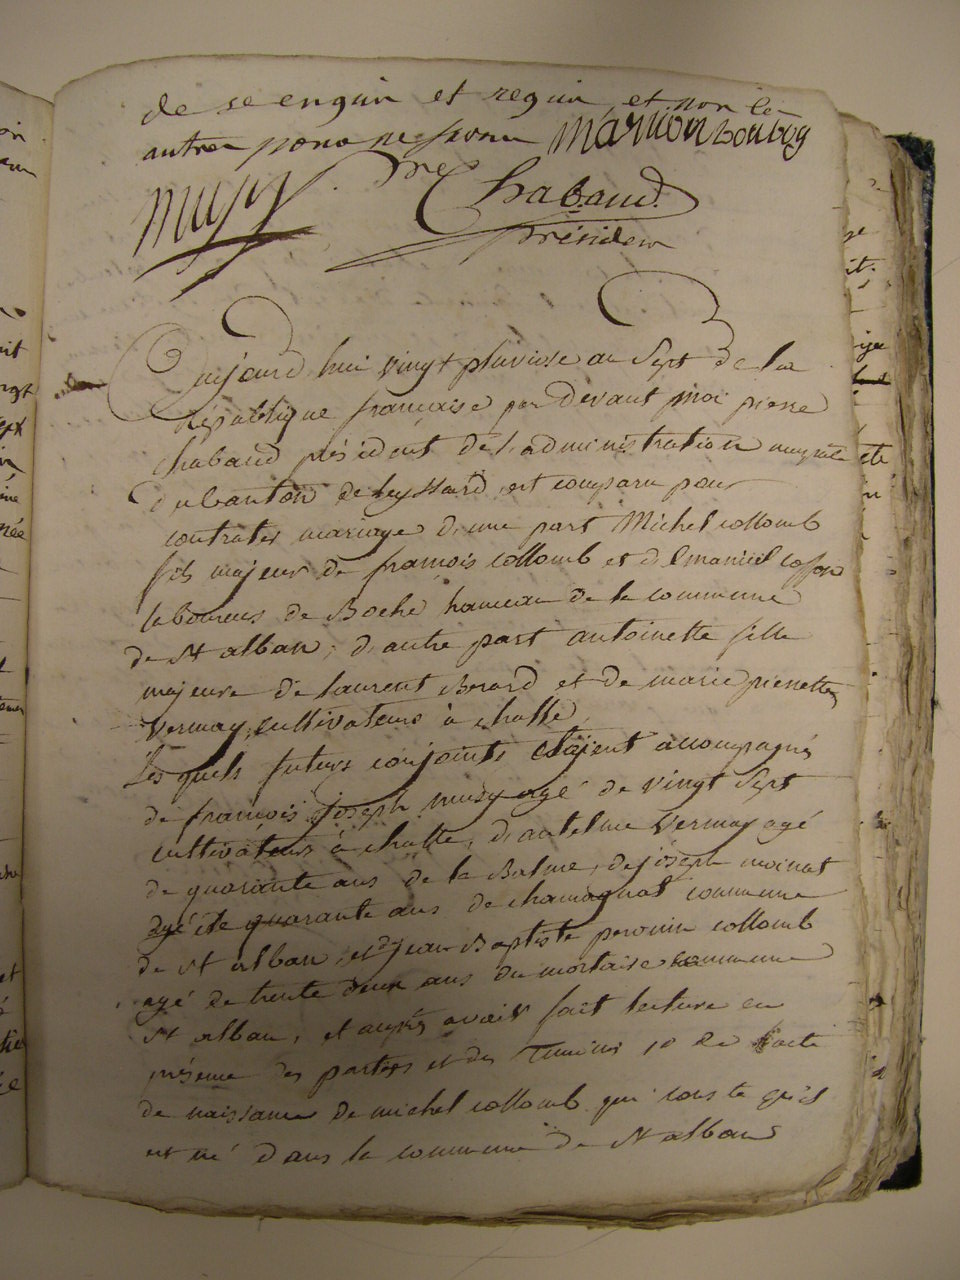 de se enquir et requir et non les
autres pour ne savoir Marion bonboy
musy
Chabaud
président
aujourd hui vingt pluviose an Sept de la
République française par devant moi pierre
chabaud président de l'administration municipale
du Canton de leyssard est comparu pour
contrater mariage d'une part Michel collomb
fils majeur de françois collomb et d
laboureurs de Boche hameau de la commune
de St alban, d'autre part antoinette fille
majeure de laurent Berard et de marie pierrette
vermay, cultivateurs à challe,
Les quels futurs conjoints etaient accompagnés
de françois joseph musy agé de vingt Sept
cultivateurs à challe, d'antelme vermay agé
de quarante ans de la Balme, de joseph moinat
agé de quarante ans de chamagnat commune
de St alban, et jean Baptiste perrin collomb
agé de trente deux ans du mortaise commune
St alban, et après avoir fait lecture en
présence des parties et des Temoins 1º de l'acte
de naissance de michel collomb qui conste qu'il
est né dans la commune de St alban